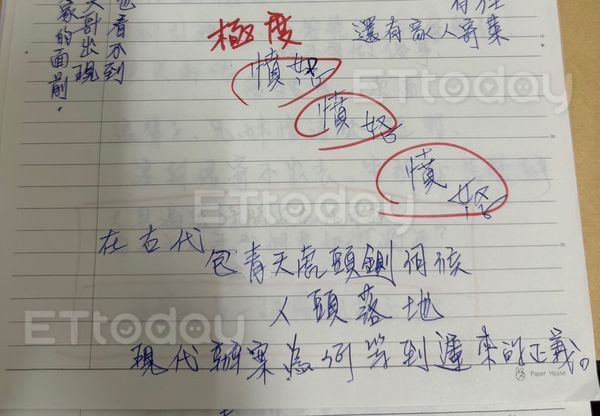 也看不到
哥出現
家的面前。
還有 人寄
極度
憤怒
憤怒
憤怒
在古代
包青天虎頭鍘伺候
人頭落地
現代辦案為何等到遲來的正義。
Paper House
ETtoday
ETtoday
ETtoday
ETtoday
ETtoday